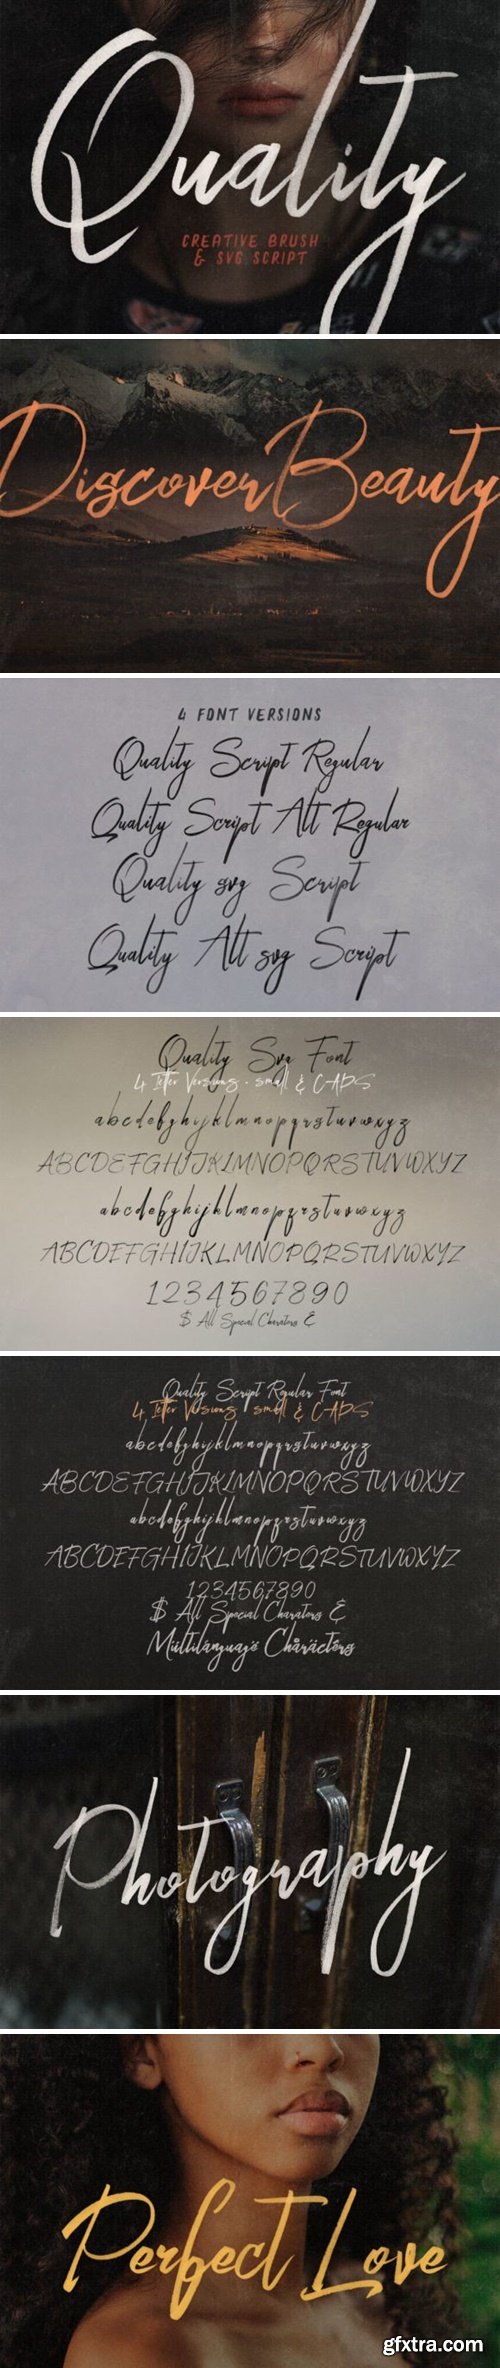 Quality
CREATIVE BRUSH
& SVG SCRIPT
Discover Beauty
4 FONT VERSIONS
Quality Script Regular
Quality Script Alt Regular
Quality svg Script
Quality Alt svg Script
Quality Svg Font
4 letter Versions - small & CAPS
abcdefghijklmnopqrstuvwxyz
ABCDEFGHIJKLMNOPQRSTUVWXYZ
abcdefghijklmnopqrstuvwxyz
ABCDEFGHIJKLMNOPQRSTUVWXYZ
1234567890
$ All Special Charaters &
Quality Script Regular Font
4 letter Versions - small & CAPS
abcdefghijklmnopqrstuvwxyz
ABCDEFGHIJKLMNOPQRSTUVWXYZ
abcdefghijklmnopqrstuvwxyz
ABCDEFGHIJKLMNOPQRSTUVWXYZ
1234567890
$ All Special Charaters &
Photography
Perfect Love
gfxtra.com